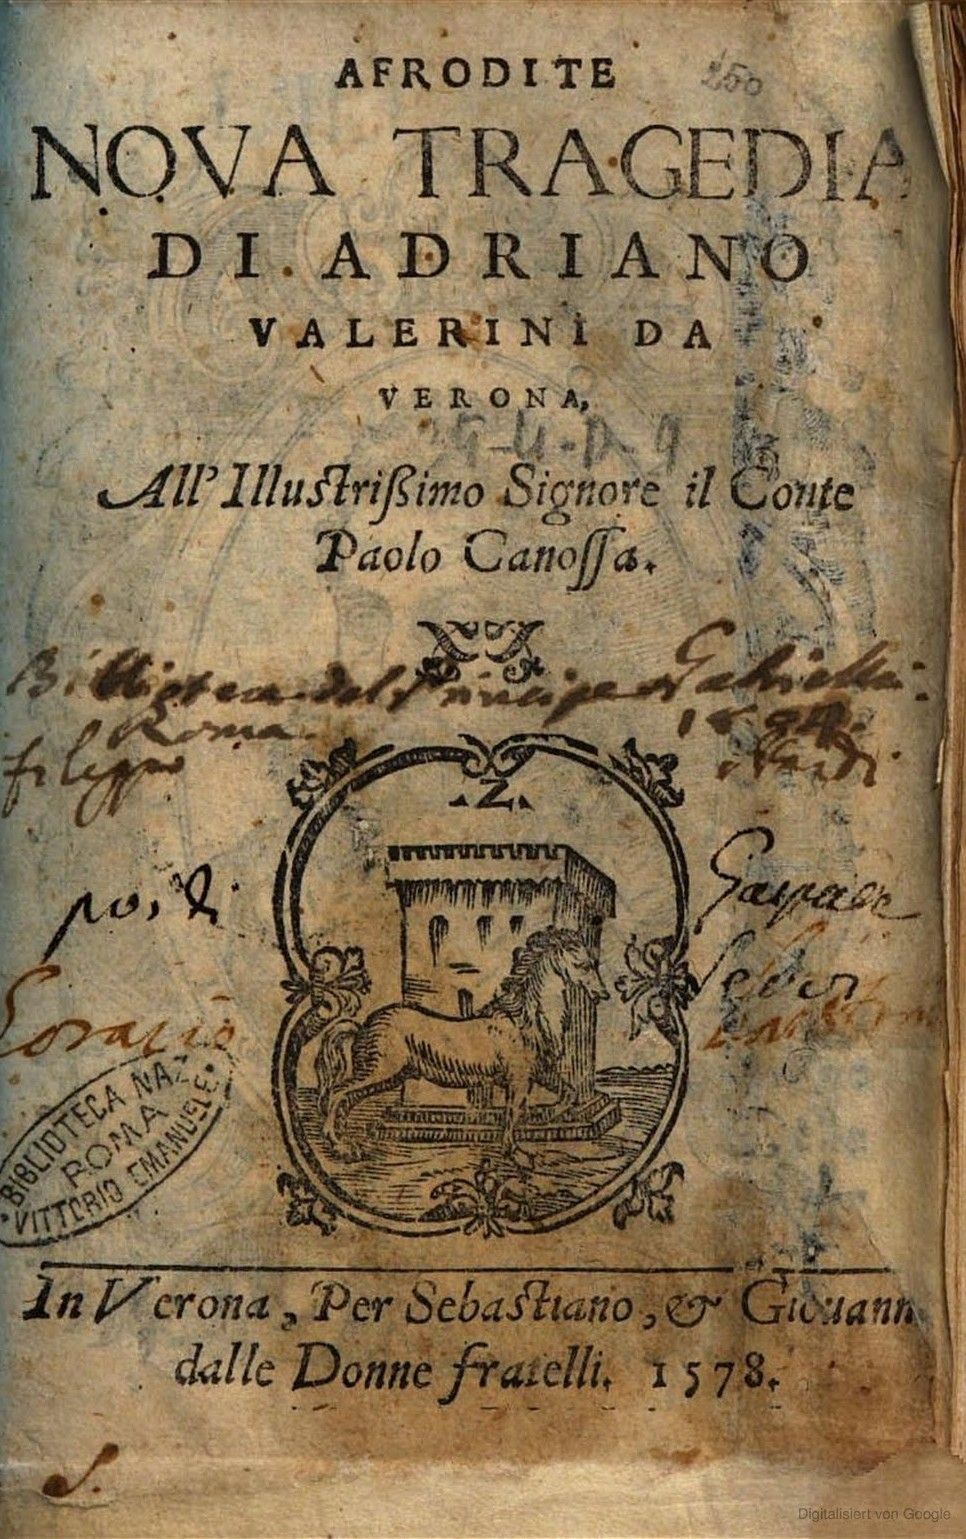 AFRODITE
250
NOVA TRAGEDIA
DI ADRIANO
VALERINI DA
VERONA,
All'Illustrißimo Signore il Conte
Paolo Canoſſa.
Biblioteca del Principe Gabrielli.
Roma.
filippo
.Z.
Gaspare
Horatio
BIBLIOTECA NAZ
ROMA
VITTORIO EMANUELE
In Verona, Per Sebastiano, & Giouann
dalle Donne fratelli. 1578.
S.
Digitalisiert von Google